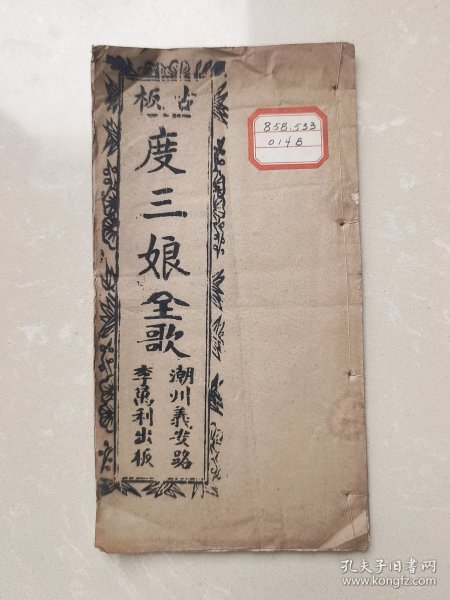 古板
度三娘全歌
潮州義安路
李萬利出板
858.533
0148
孔夫子旧书网
www.kongfz.com